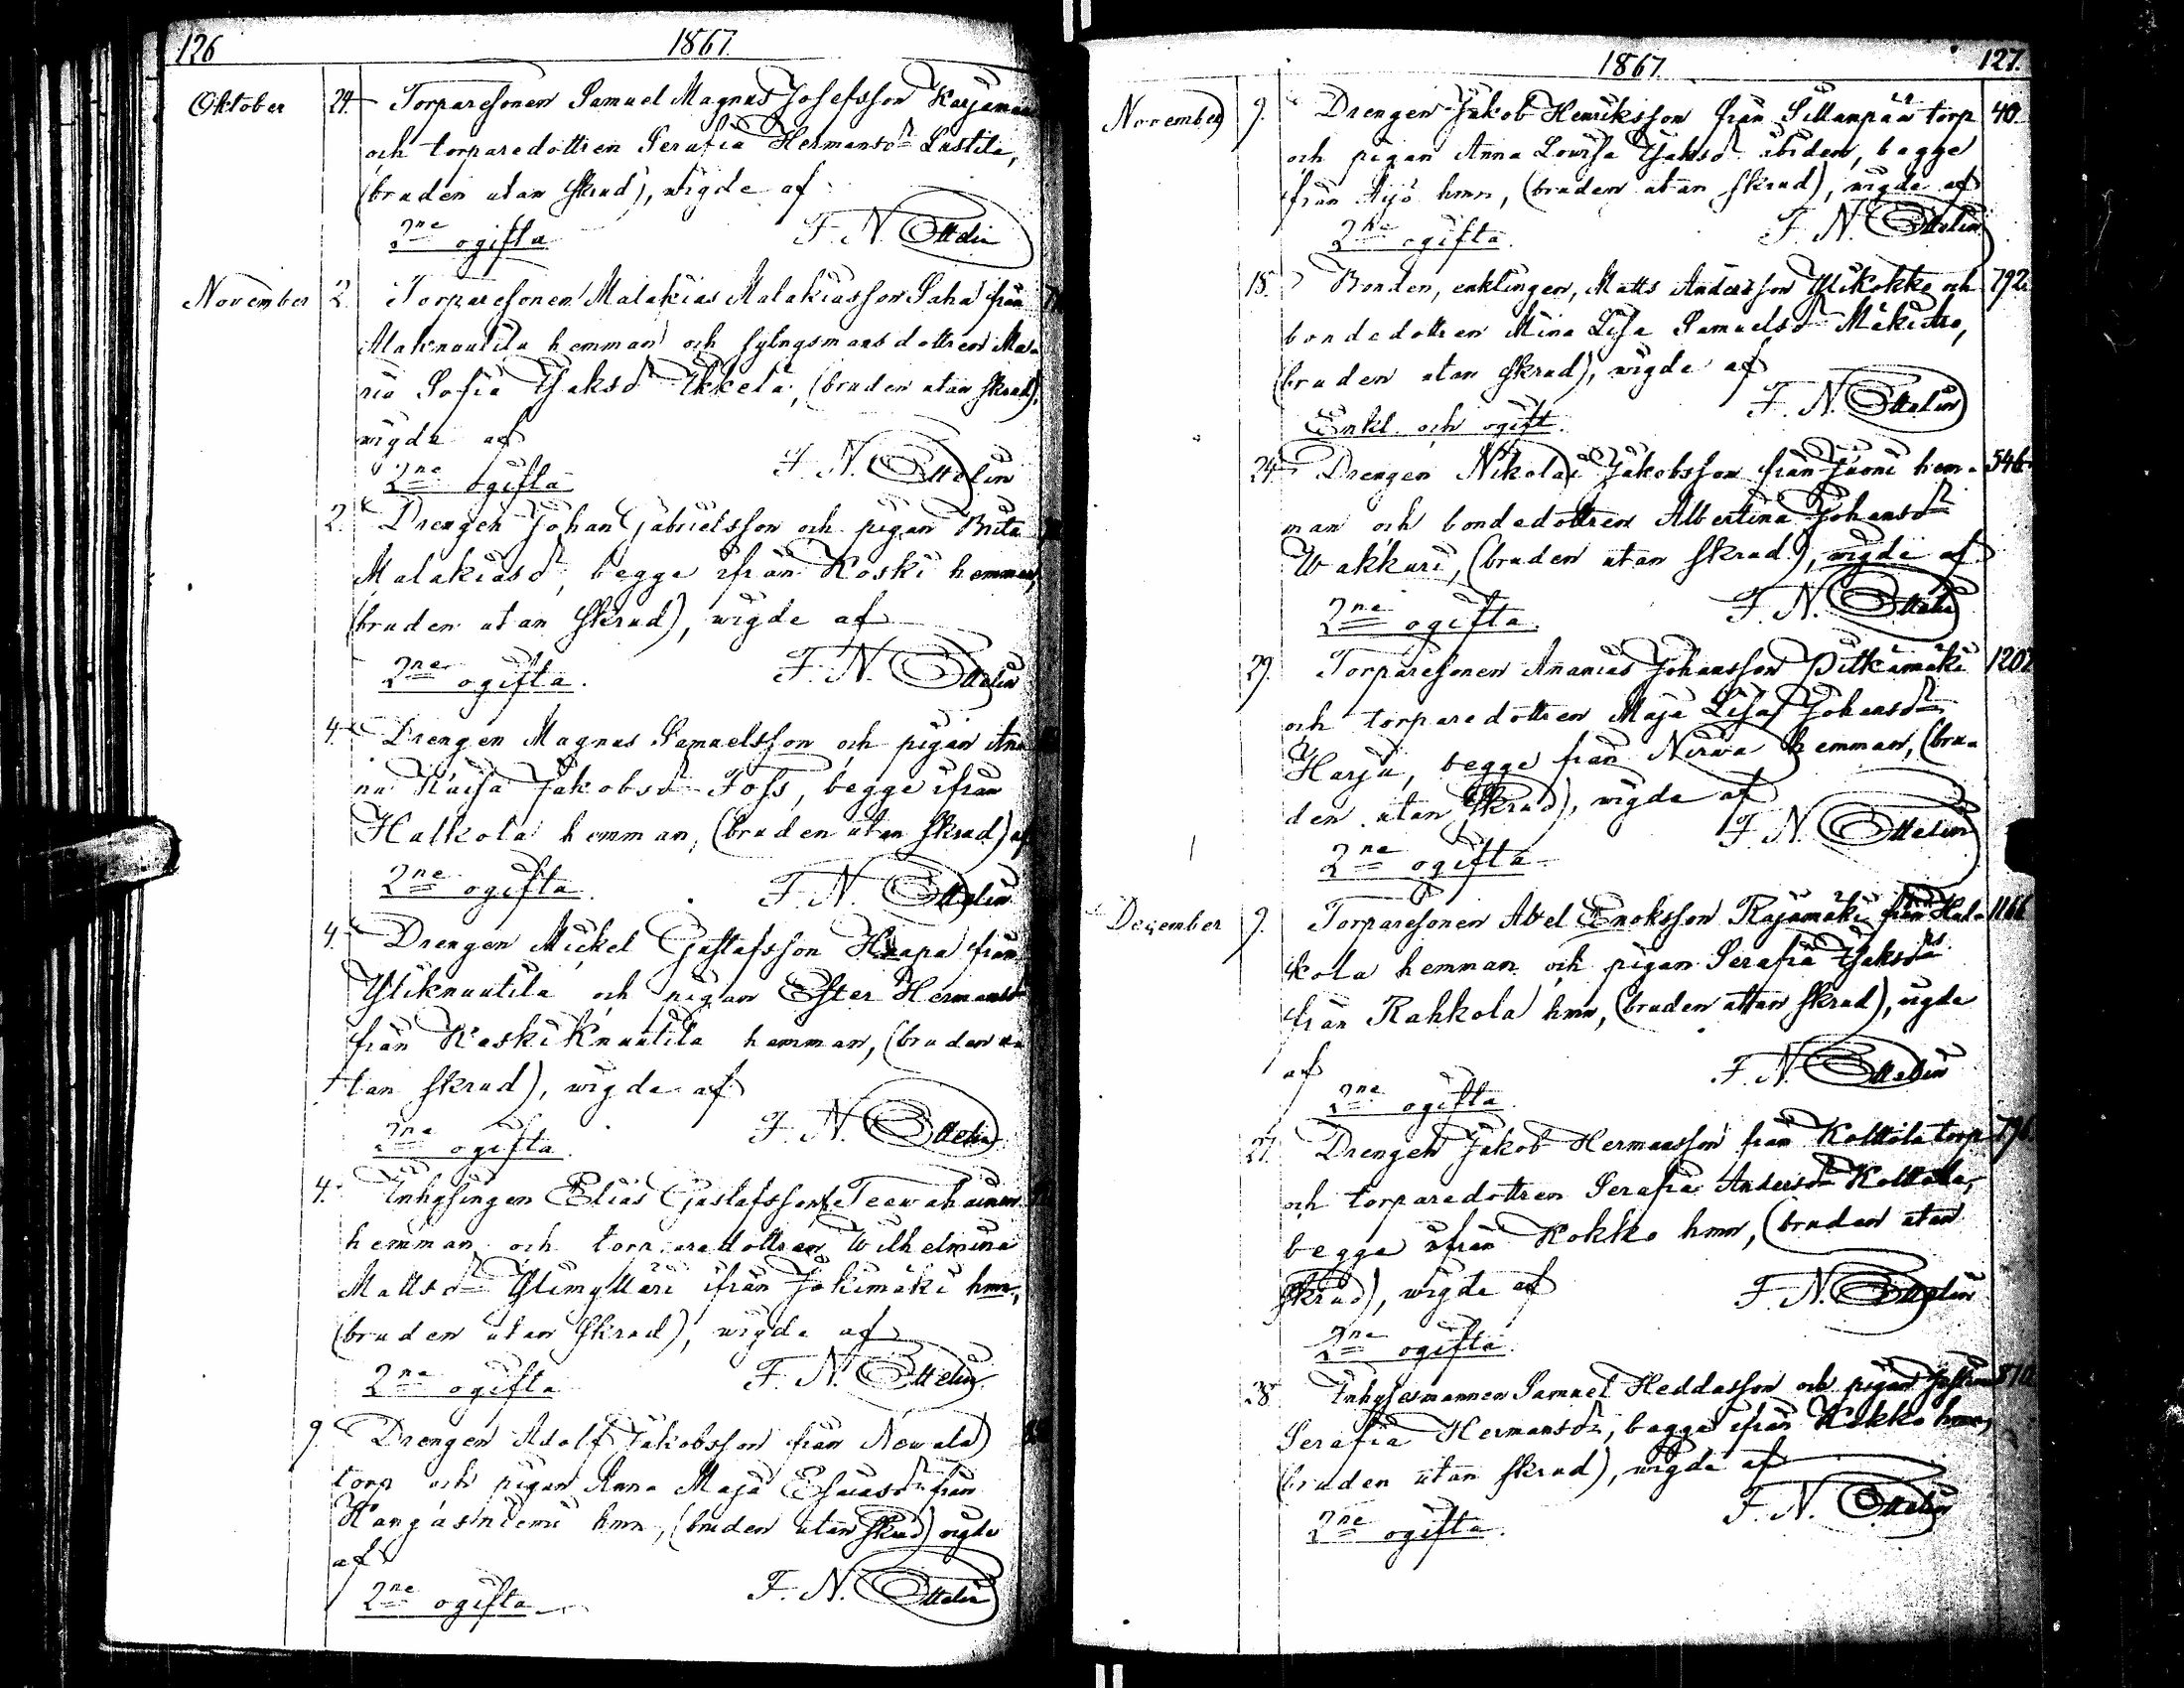 126
1867.
Oktober 24. Torparesonen Samuel Magnus Josefsson Karjaman
och torparedottren Serafia Hermansdr Lastila,
(bruden utan skrud), wigde af
2ne ogifta F. N. Ottelin
November 2. Torparesonen Malakias Malakiasson Saha från
Alaknuutila hemman och sylngsmansdottren Ma-
ria Sofia Isaksdr Ikkela, (bruden utan skrud),
wigde af
2ne ogifta F. N. Ottelin
2. Drengen Johan Gabrielsson och pigan Brita
Malakiasdr, begge ifrån Koski hemman,
(bruden utan skrud), wigde af
2ne ogifta. F. N. Ottelin
4. Drengen Magnus Samuelsson och pigan An
na Kaisa Jakobsdr Foss, begge ifrån
Halkola hemman, (bruden utan skrud) af
2ne ogifta. F. N. Ottelin
4. Drengen Mickel Gustafsson Haapa från
Yliknuutila och pigan Ester Hermansdr
från KoskiKnuutila hemman, (bruden u-
tan skrud), wigde af
2ne ogifta. F. N. Ottelin
4. Inhysingen Elias Gustafsson Teewahainen
hemman och torparedottren Wilhelmina
Mattsdr Ylimylläri ifrån Jokimäki hmn,
(bruden utan skrud), wigde af
2ne ogifta F. N. Ottelin
9. Drengen Adolf Jakobsson från Newala
torp och pigan Anna Maja Esaiasdr från
Kangasniemi hmn, (bruden utan skrud) wigde
af
2ne ogifta F. N. Ottelin
1867.
127.
November 9. Drengen Jakob Henriksson från Sillanpää torp 40.
och pigan Anna Lowisa Isaksdr ibidem, begge
från Äijö hmn, (bruden utan skrud), wigde af
2ne ogifta. F. N. Ottelin
18. Bonden, enklingen, Matts Andersson Ylikokko och 792.
bondedottren Mina Lisa Samuelsdr Mäkitro,
(bruden utan skrud), wigde af
Enkl. och ogift. F. N. Ottelin
24. Drengen Nikolai Jakobsson från Juoni hem- 546.
man och bondedottren Albertina Johansdr
Wakkuri, (bruden utan skrud), wigde af
2ne ogifta. F. N. Ottelin
29. Torparesonen Ananias Johansson Pitkämäki 1202
och torparedottren Maja Lisa Johansdr
Harju, begge från Nirwa hemman, (bru-
den utan skrud), wigde af
2ne ogifta F. N. Ottelin
December 9. Torparesonen Abel Enoksson Rajamäki från Hal- 1166
kola hemman och pigan Serafia Isaksdr
från Rahkola hmn, (bruden utan skrud), wigde
af
2ne ogifta. F. N. Ottelin
27. Drengen Jakob Hermansson från Kolttola torp 796
och torparedottren Serafia Andersdr Kolttola,
begge ifrån Kokko hmn, (bruden utan
skrud), wigde af F. N. Ottelin
2ne ogifta.
28. Inhysesmannen Samuel Heddasson och pigan Justina 870
Serafia Hermansdr, begge ifrån Kokko hmn,
(bruden utan skrud), wigde af
2ne ogifta. F. N. Ottelin